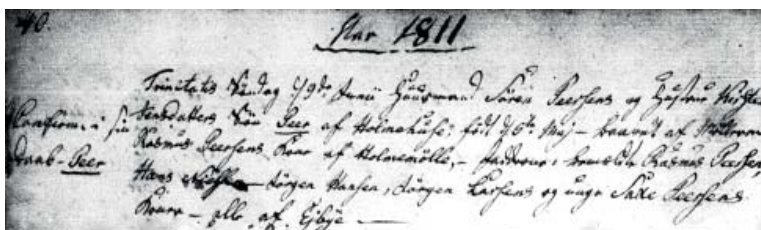 40.
Aar 1811
Trinitatis Søndag d 9de Junii Huusmand Sören Peersens og Hustrue Kirsten
Confirm. i sin Jensdatters Sön Peer af Holmehuse; født d 6te Maj – baaret af
daab – Peer Rasmus Peersens Kone af Holmemölle, – Faddere: Rasmus Peersen,
Hans Jörgen Hansen, Jörgen Larsens og unge Saxe Peersens
Kone – alle af Ejbye